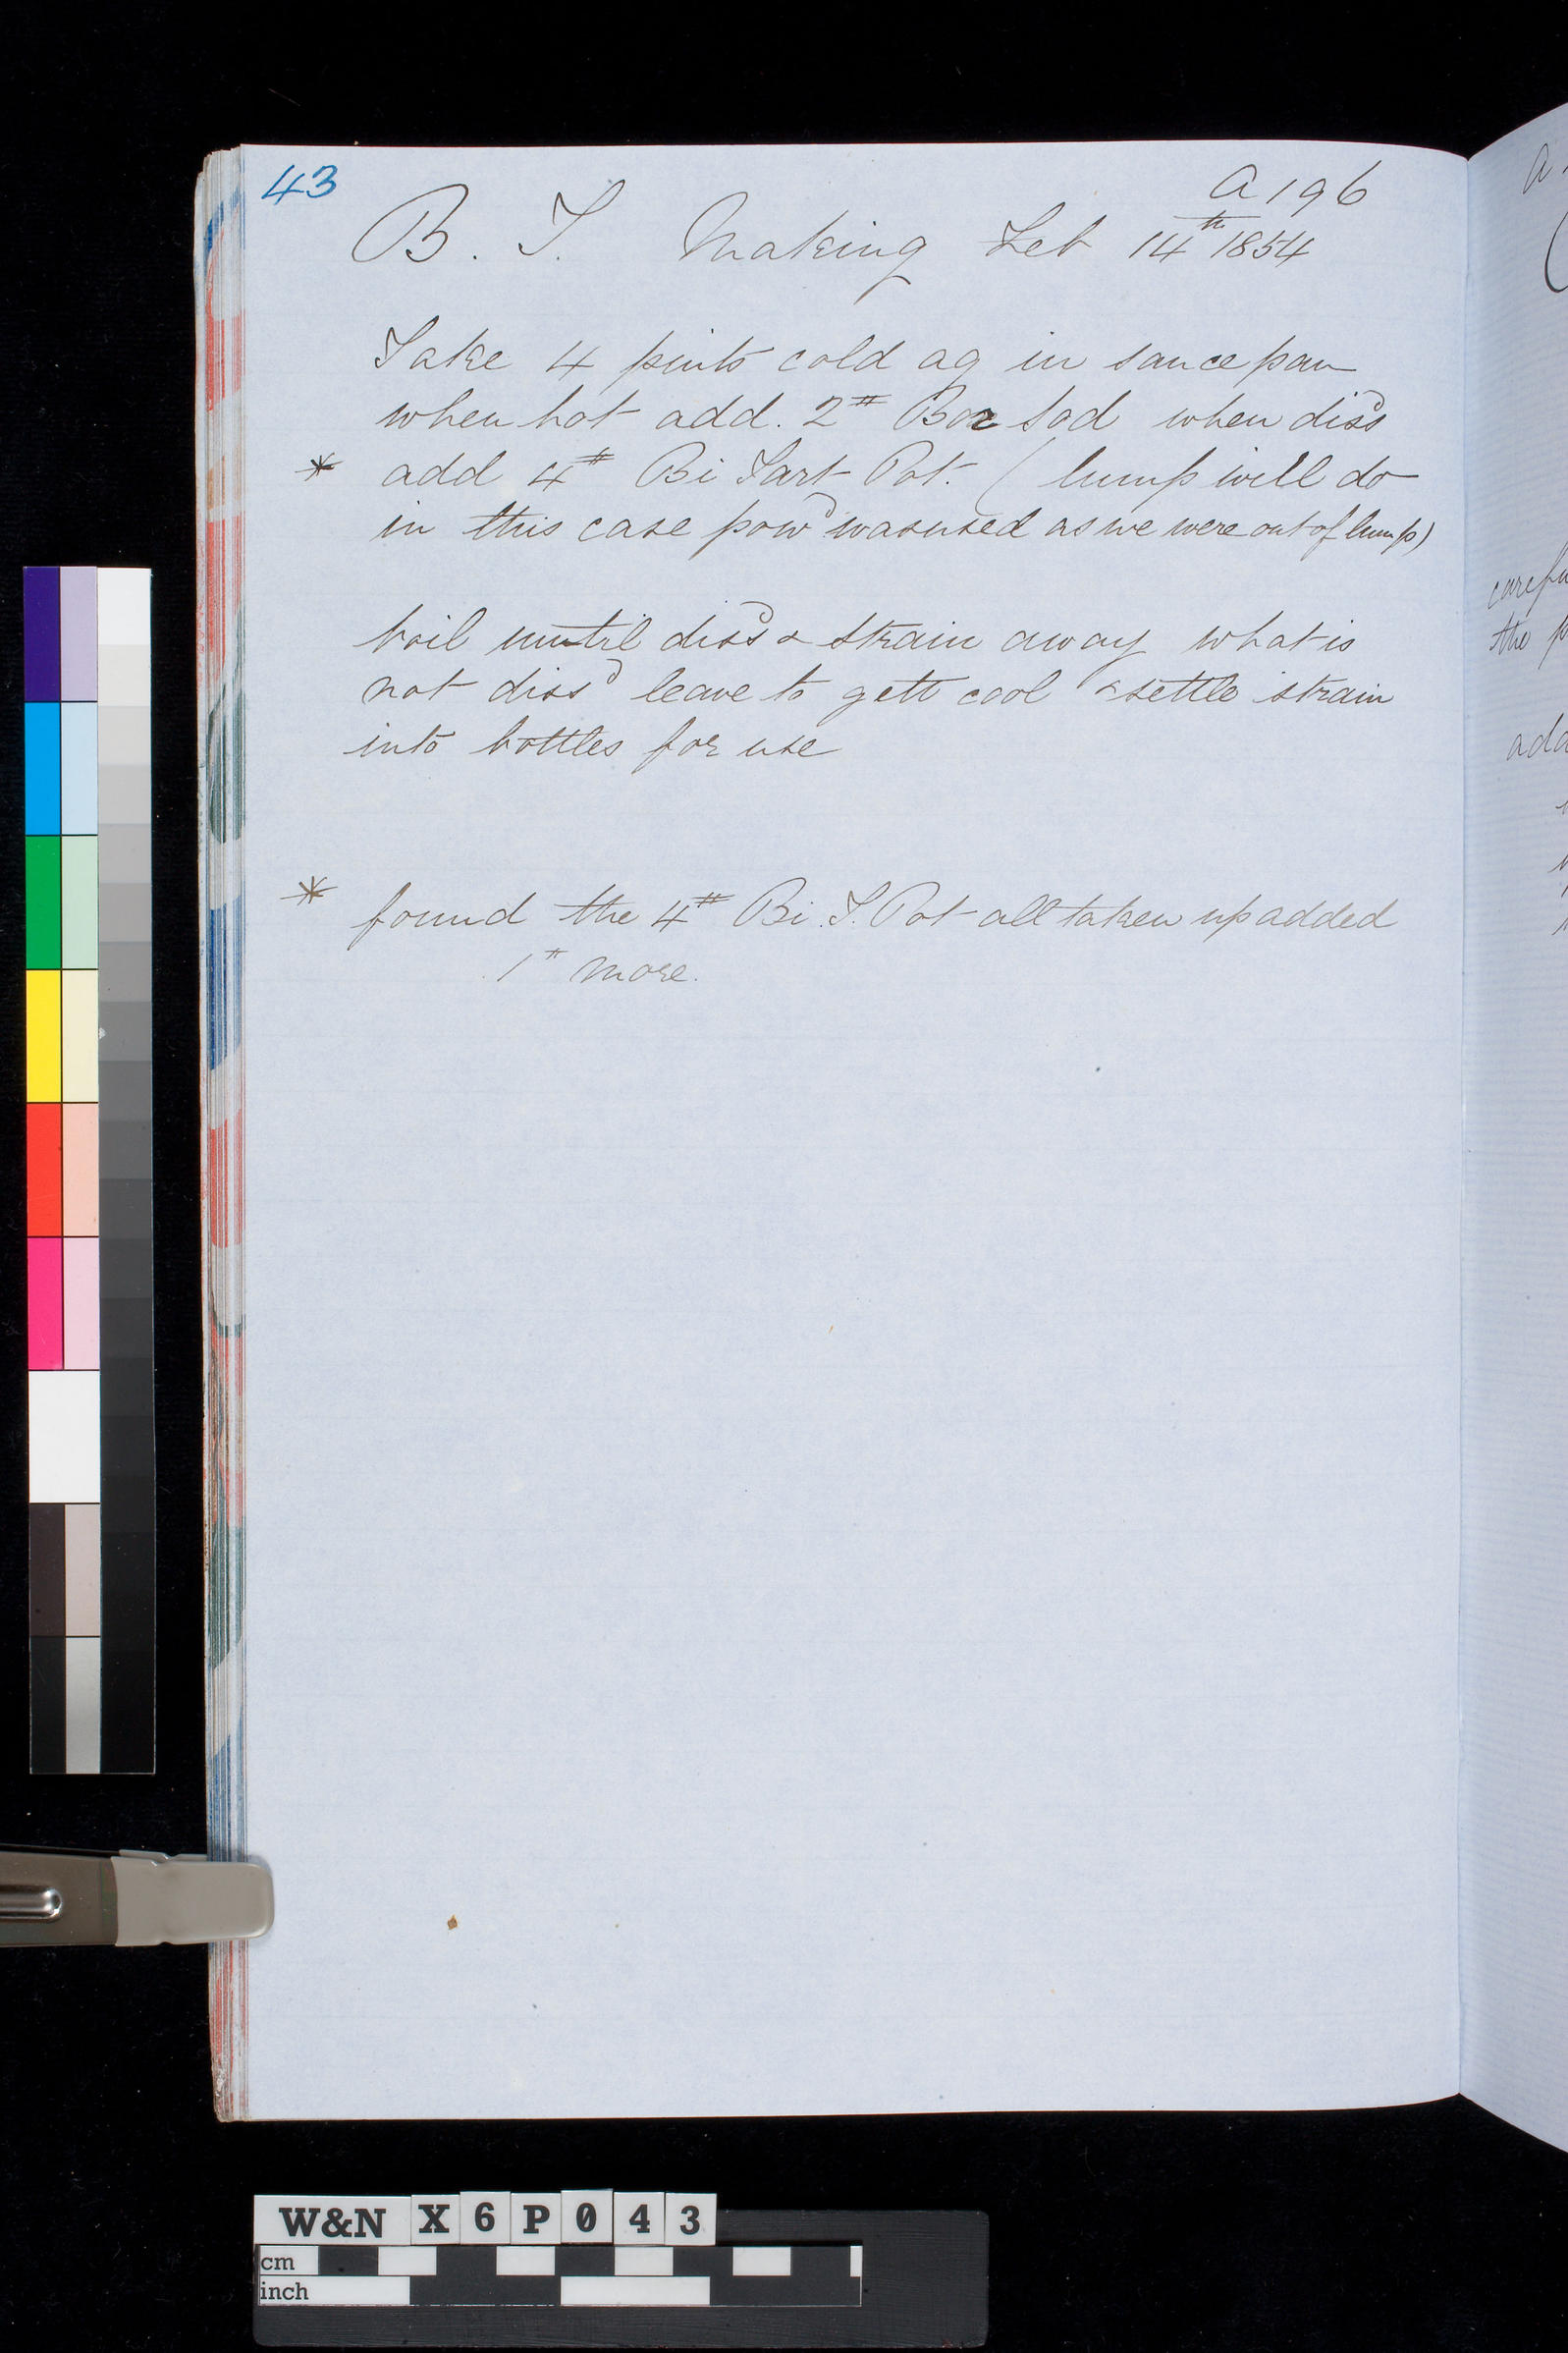 43
A 196
B. T. Making Feb 14th 1854
Take 4 pints cold aq in sauce pan
when hot add. 2# Bor Sod when dissd
* add 4# Bi Tart Pot. ( lump will do
in this case powd was used as we were out of lump)
boil unntil dissd & strain away what is
not dissd leave to gett cool & settle strain
into bottles for use
* found the 4# Bi. T. Pot all taken up added
1# more.
a
carefu
the p
add
W&N X6P043
cm
inch